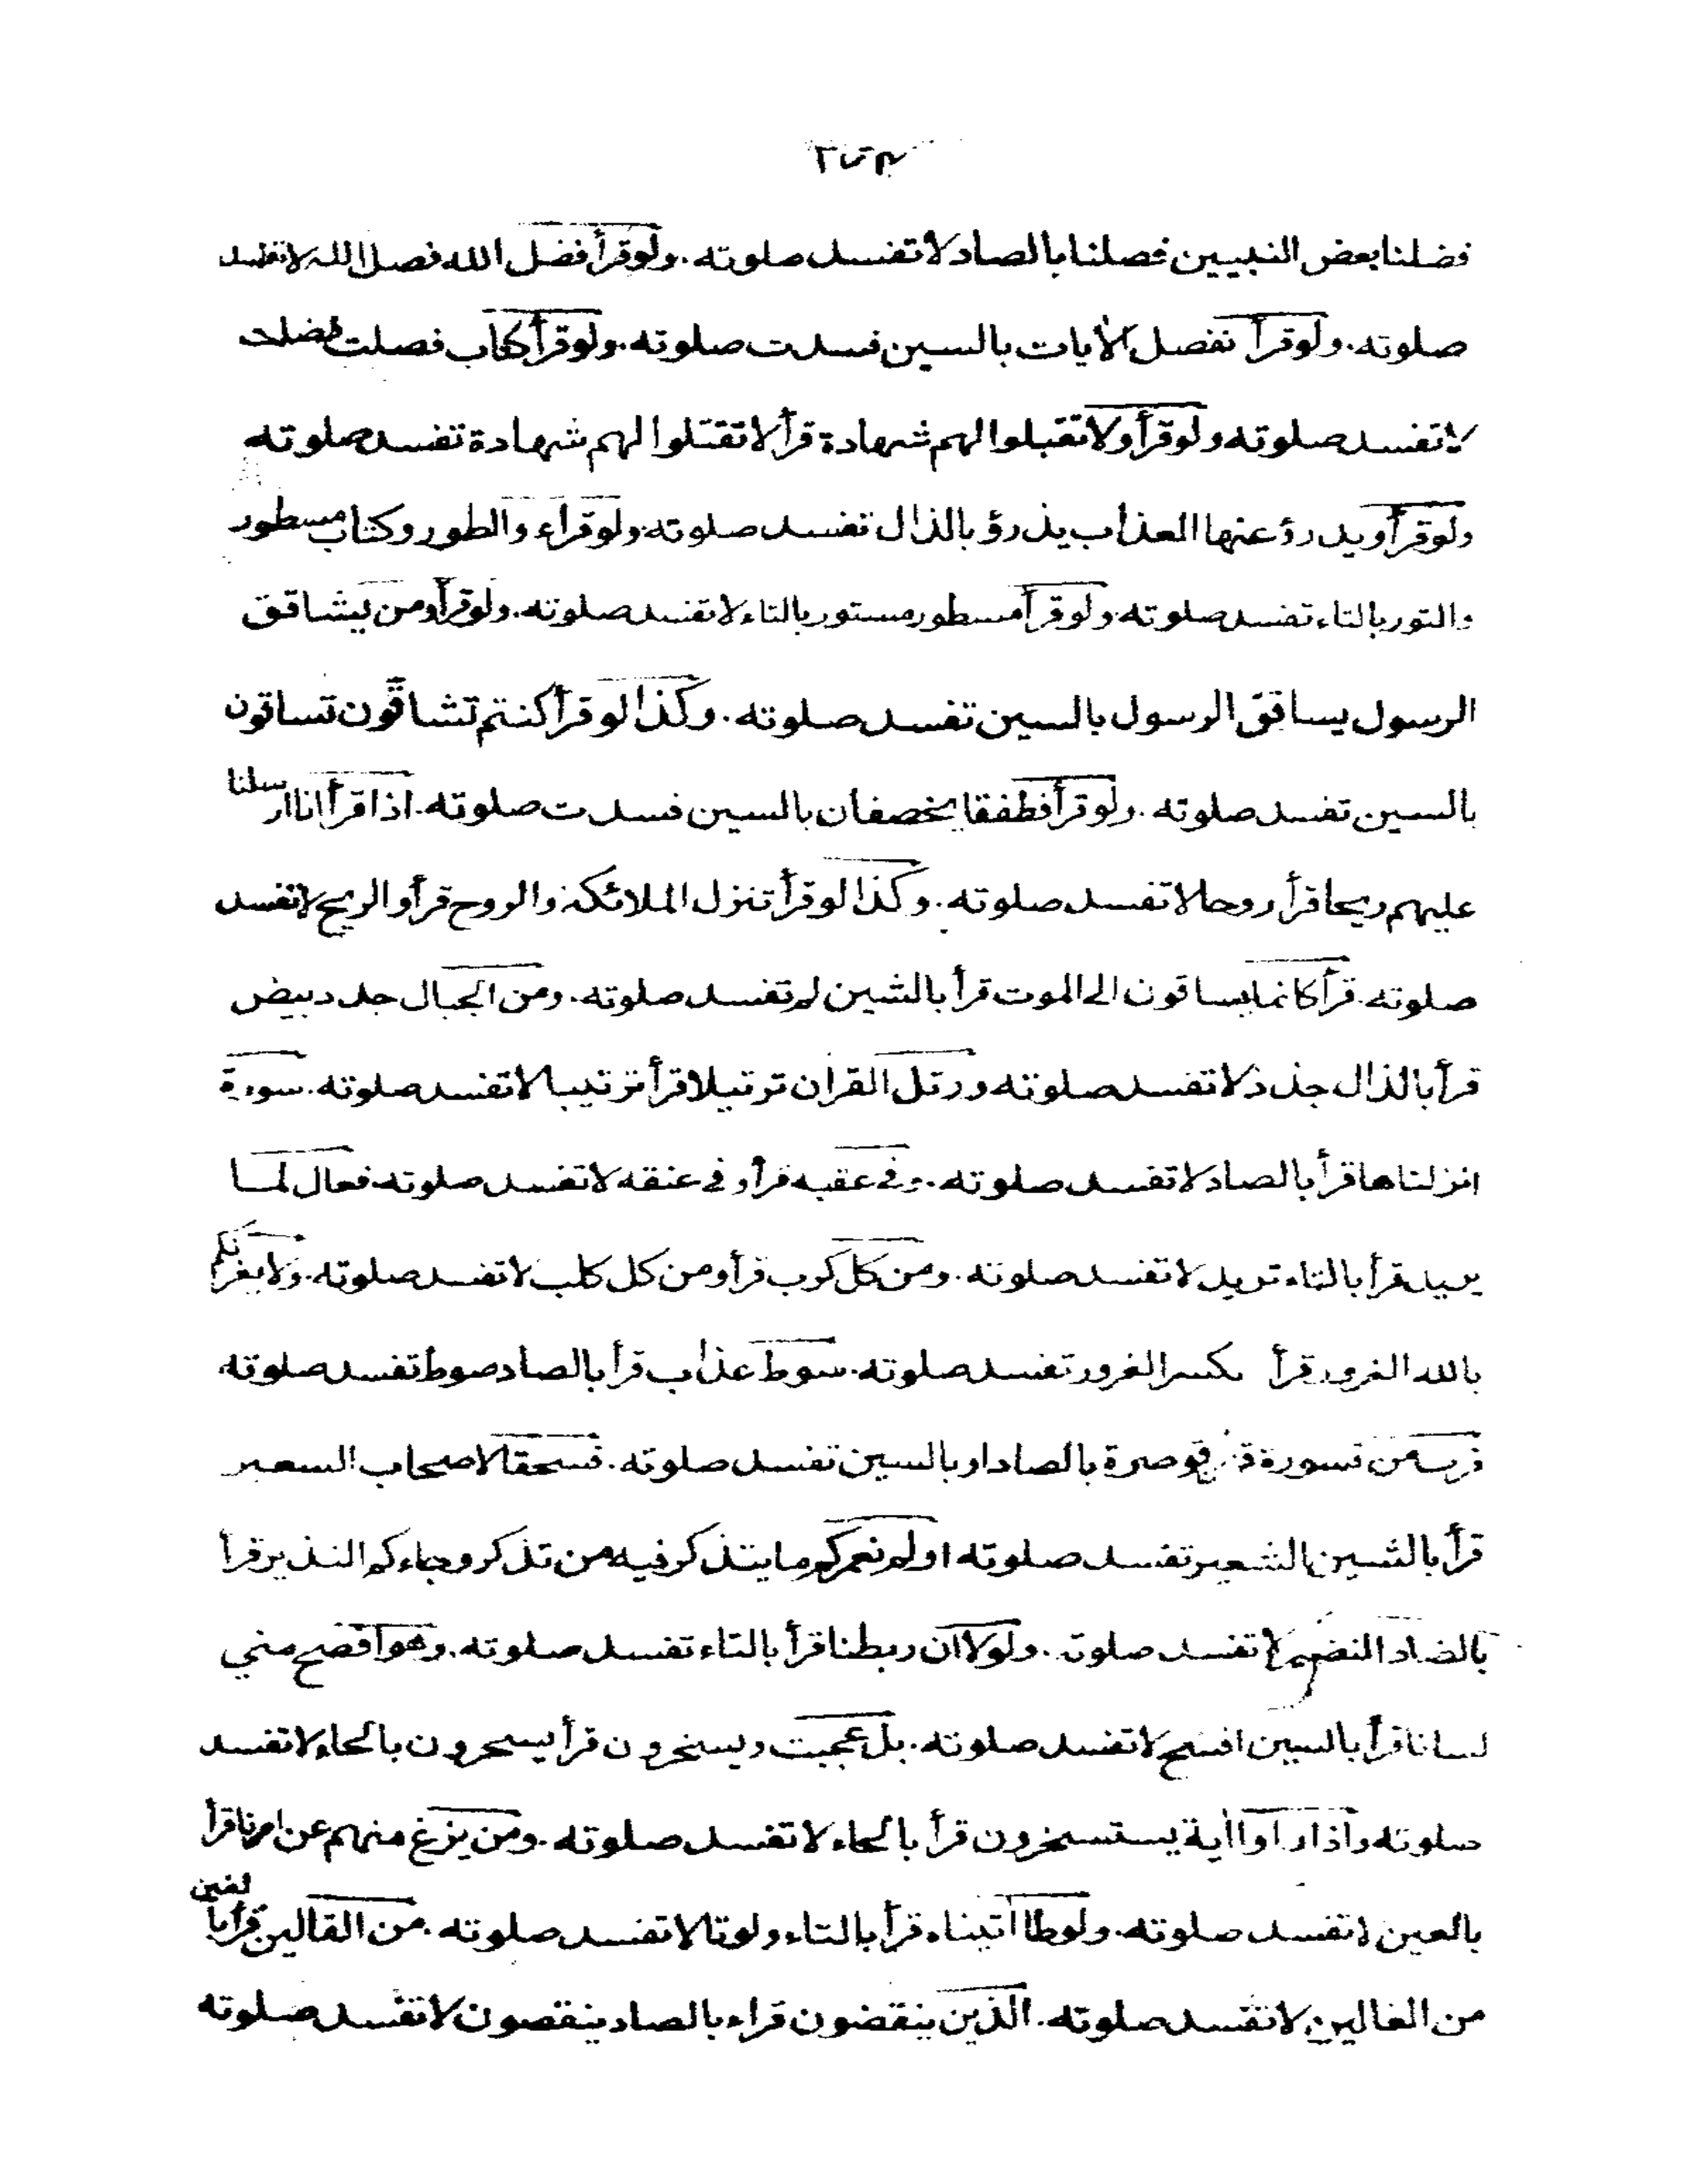 فضلنا بعض النبيين فصلنا بالصاد لا تفسد صلوته. ولو قرأ فضل الله فصل الله لا تفسد
صلوته. ولو قرأ نفصل الأيات بالسين فسدت صلوته. ولو قرأ كتاب فصلت فضلت
لا تفسد صلوته ولو قرأ ولا تقبلوا لهم شهادة قرأ لا تقتلوا لهم شهادة تفسد صلوته
ولو قرأ ويدرؤ عنها العذاب يذرؤ بالذال تفسد صلوته. ولو قراء والطور وكتاب مسطور
والتور بالتاء تفسد صلوته. ولو قرأ مسطور مستور بالتاء لا تفسد صلوته. ولو قرأ ومن يشاقق
الرسول يساقق الرسول بالسين تفسد صلوته. وكذا لو قرأ كنتم تشاقون تساقون
بالسين تفسد صلوته. ولو قرأ فطفقا يخصفان بالسين فسدت صلوته. اذا قرأ انا ارسلنا
عليهم ريحا قرأ روحا لا تفسد صلوته. وكذا لو قرأ تنزل الملائكة والروح قرأ والريح لا تفسد
صلوته. قرأ كانما يساقون الى الموت قرأ بالشين لم تفسد صلوته. ومن الجبال جدد بيض
قرأ بالذال جذذ لا تفسد صلوته ورتل القران ترتيلا قرأ ترتيبا لا تفسد صلوته. سورة
انزلناها قرأ بالصاد لا تفسد صلوته. وفي عقبه قرأ وفي عنقه لا تفسد صلوته. فعال لما
يريد قرأ بالتاء تريد لا تفسد صلوته. ومن كل كرب قرأ ومن كل كلب لا تفسد صلوته. ولا يغرنكم
بالله الغرور قرأ بكسر الغرور تفسد صلوته. سوط عذاب قرأ بالصاد صوط تفسد صلوته
من قسورة قوصرة بالصاد او بالسين تفسد صلوته. فسحقا لاصحاب السعير
قرأ بالشين الشعير تفسد صلوته اولم نعمركم ما يتذكر فيه من تذكر وجاءكم النذير قرأ
بالضاد النضير لا تفسد صلوته. ولولا ان ربطنا قرأ بالتاء تفسد صلوته. وهو افصح مني
لسانا قرأ بالسين افسح لا تفسد صلوته. بل عجبت ويسخرون قرأ يسحرون بالحاء لا تفسد
صلوته واذا راوا اية يستسخرون قرأ بالحاء لا تفسد صلوته. ومن يزغ منهم عن امرنا قرأ
بالعين لا تفسد صلوته. ولوطا اتيناه قرأ بالتاء ولوتا لا تفسد صلوته. من القالين قرأ بالغين
من الغالين لا تفسد صلوته. الذين ينقضون قراء بالصاد ينقصون لا تفسد صلوته